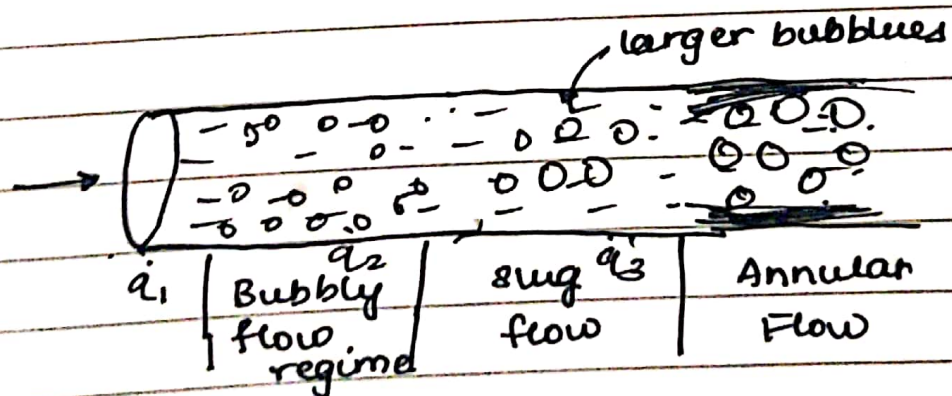 larger bubblues
q̇₁
Bubbly
flow
regime
q̇₂
slug
flow
q̇₃
Annular
Flow